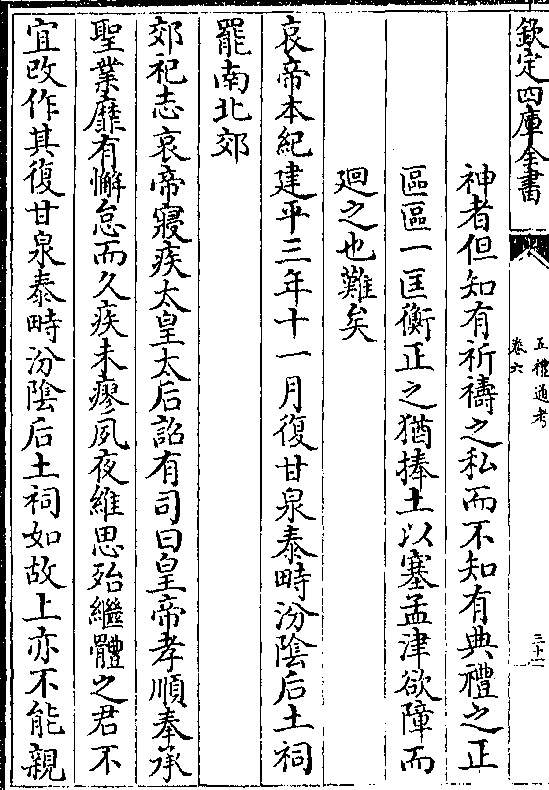 欽定四庫全書
五禮通考
卷六
三十一
神者但知有祈禱之私而不知有典禮之正
區區一匡衡正之猶捧土以塞孟津欲障而
廻之也難矣
哀帝本紀建平三年十一月復甘泉泰畤汾陰后土祠
罷南北郊
郊祀志哀帝寢疾太皇太后詔有司曰皇帝孝順奉承
聖業靡有懈怠而久疾未瘳夙夜維思殆繼體之君不
宜改作其復甘泉泰畤汾陰后土祠如故上亦不能親